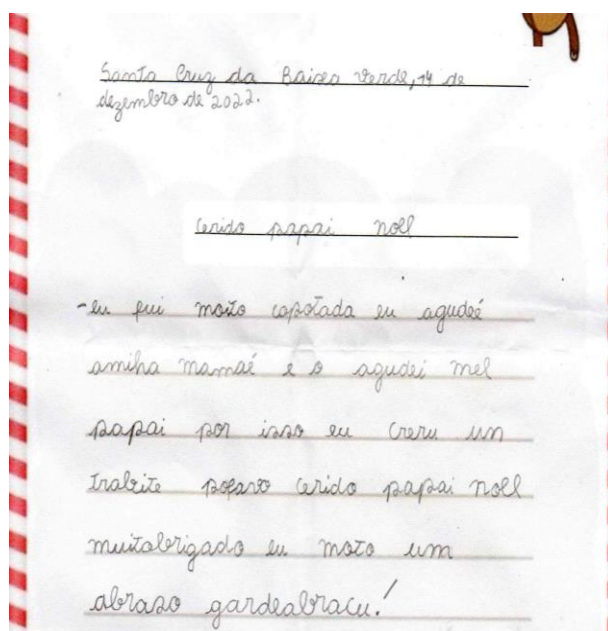 Santa Cruz da Baixa Verde, 14 de
dezembro de 2022.
Cerido papai noel
-eu fui moito copotada eu agudeé
amiha mamãé e o agudei mel
papai por isso eu creru um
trabite pofavo cerido papai noel
muitobrigado eu moto um
abraso gardeabracu!